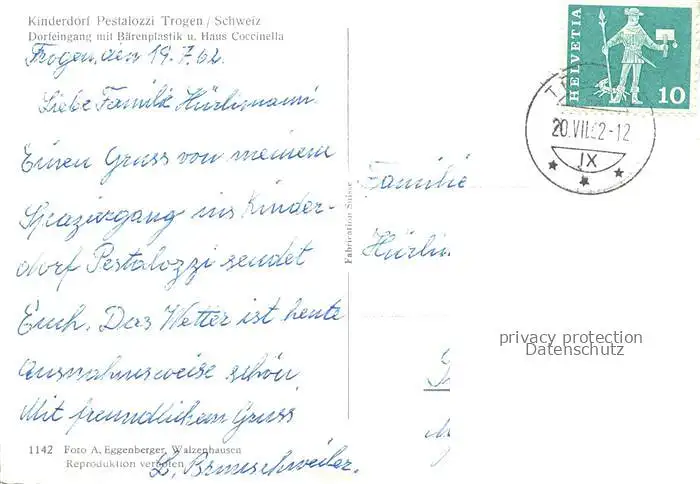 Kinderdorf Pestalozzi Trogen / Schweiz
Dorfeingang mit Bärenplastik u. Haus Coccinella
Trogen, den 19.7.62
Liebe Familie Hürlimann!
Einen Gruss von meinem
Spaziergang ins Kinder-
dorf Pestalozzi sendet
Euch. Das Wetter ist heute
ausnahmsweise schön.
Mit freundlichem Gruss
1142 Foto A. Eggenberger, Walzenhausen
Reproduktion verboten
Fabrication Suisse
HELVETIA
10
20.VII.62-12
IX
Familie
Hürlim
privacy protection
Datenschutz